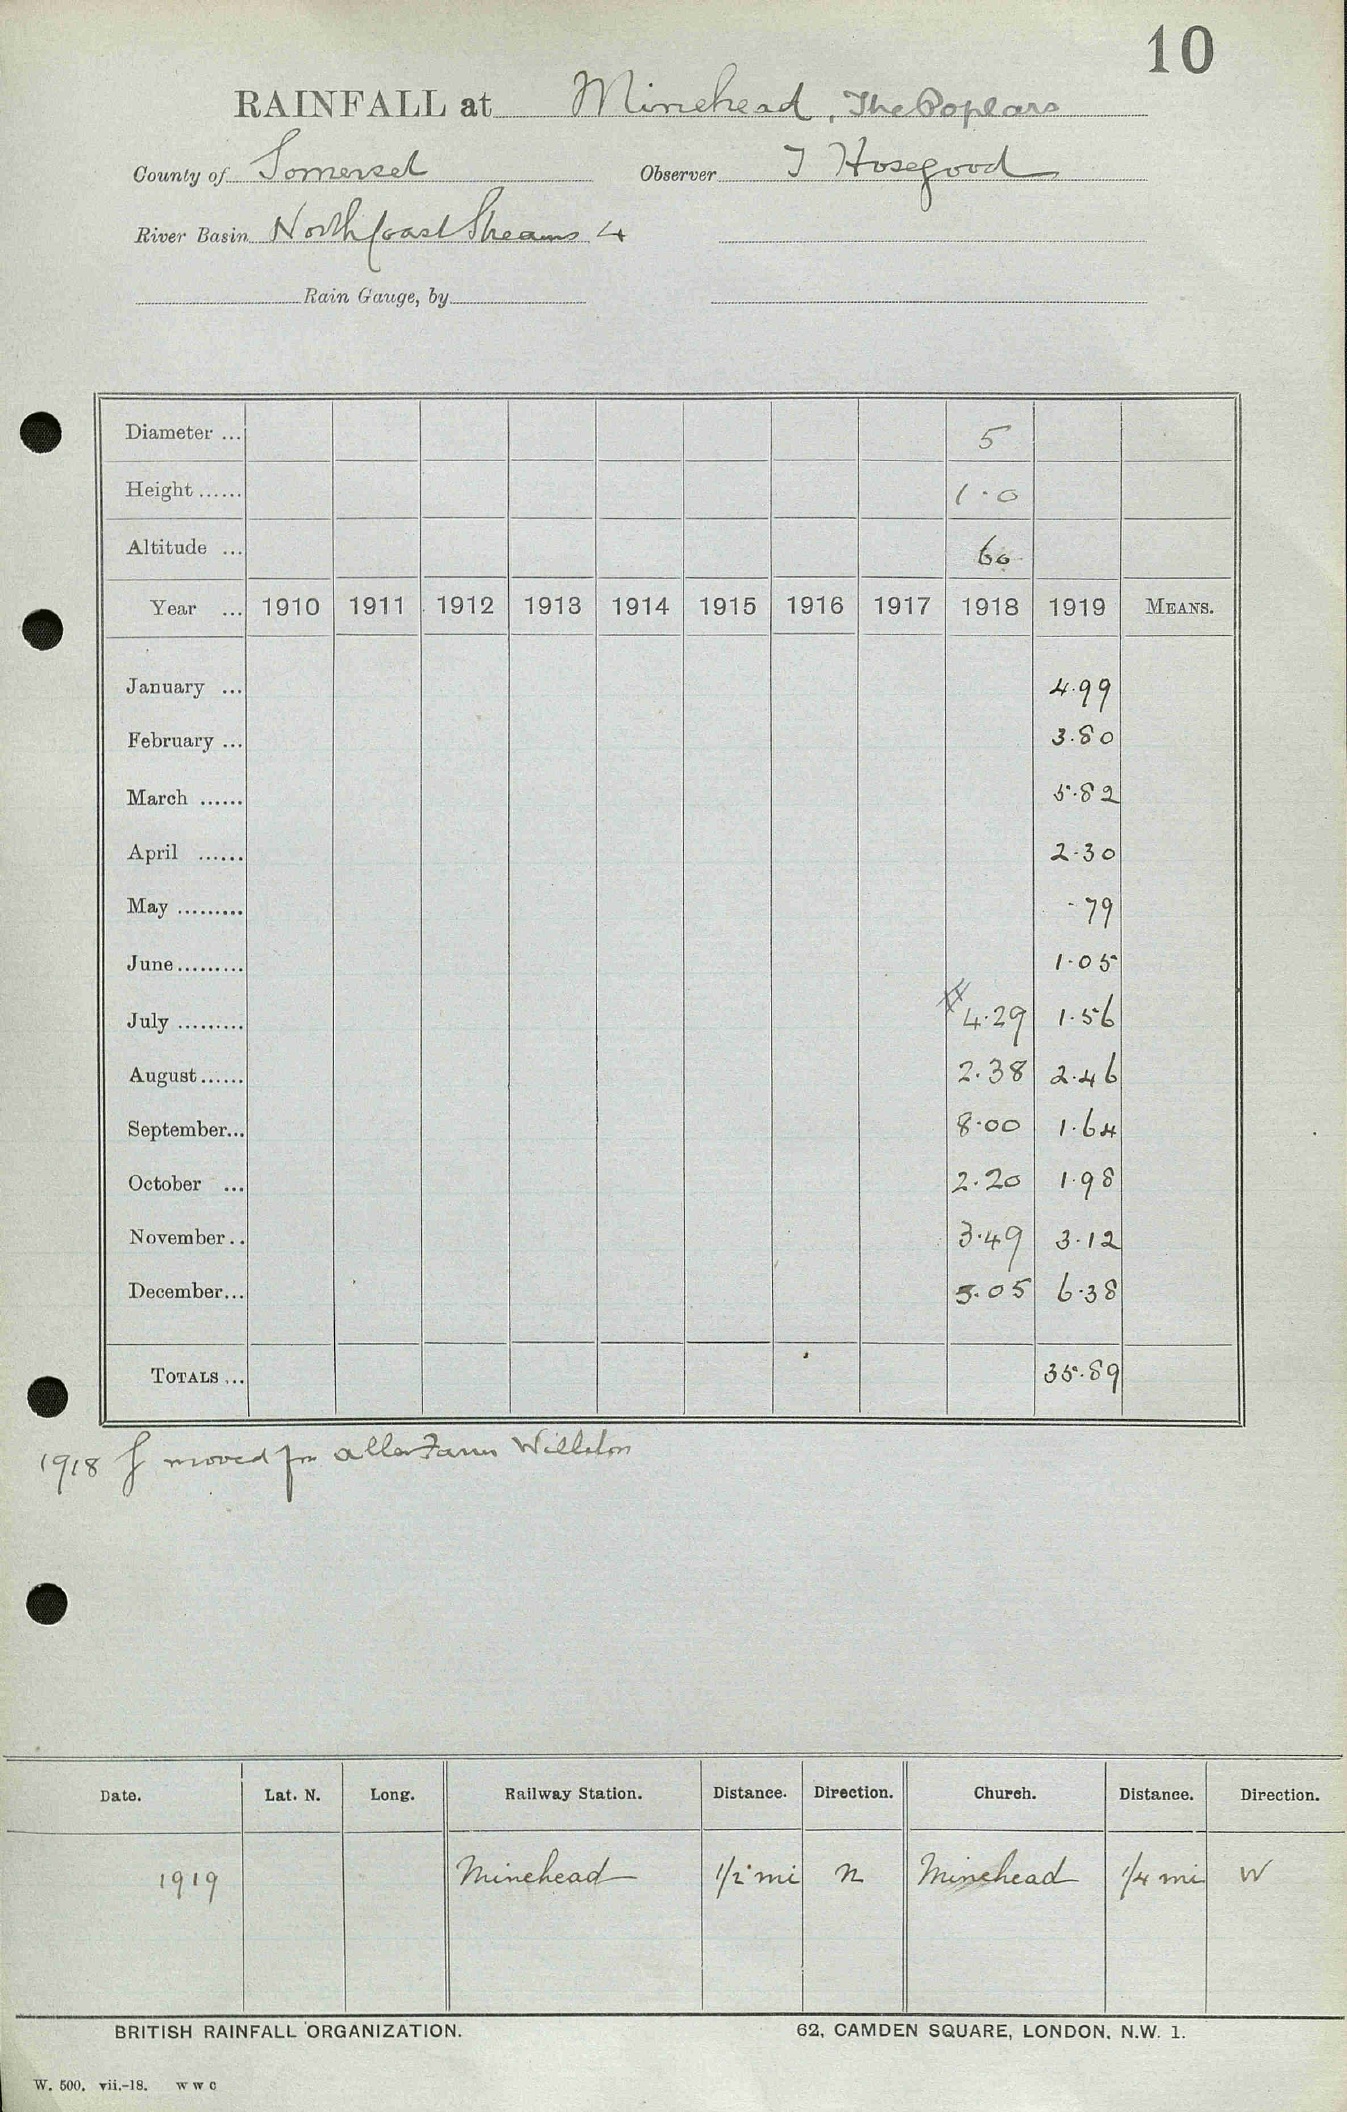 10
RAINFALL at Minehead, The Poplars
County of Somerset Observer J Hosegood
River Basin North Coast Streams 4
Rain Gauge, by
Diameter ... 5
Height ...... 1.0
Altitude ... 60
Year ... 1910 1911 1912 1913 1914 1915 1916 1917 1918 1919 MEANS.
January ... 4.99
February ... 3.80
March ...... 5.82
April ...... 2.30
May ......... .79
June ......... 1.05
July ......... 4.29 1.56
August ...... 2.38 2.46
September... 8.00 1.64
October ... 2.20 1.98
November .. 3.49 3.12
December... 5.05 6.38
TOTALS ... 35.89
1918 moved fm Aller Farm Williton
Date. Lat. N. Long. Railway Station. Distance. Direction. Church. Distance. Direction.
1919 Minehead 1/2 mi N Minehead 1/4 mi W
BRITISH RAINFALL ORGANIZATION. 62, CAMDEN SQUARE, LONDON, N.W. 1.
W. 500. vii.-18. W W C